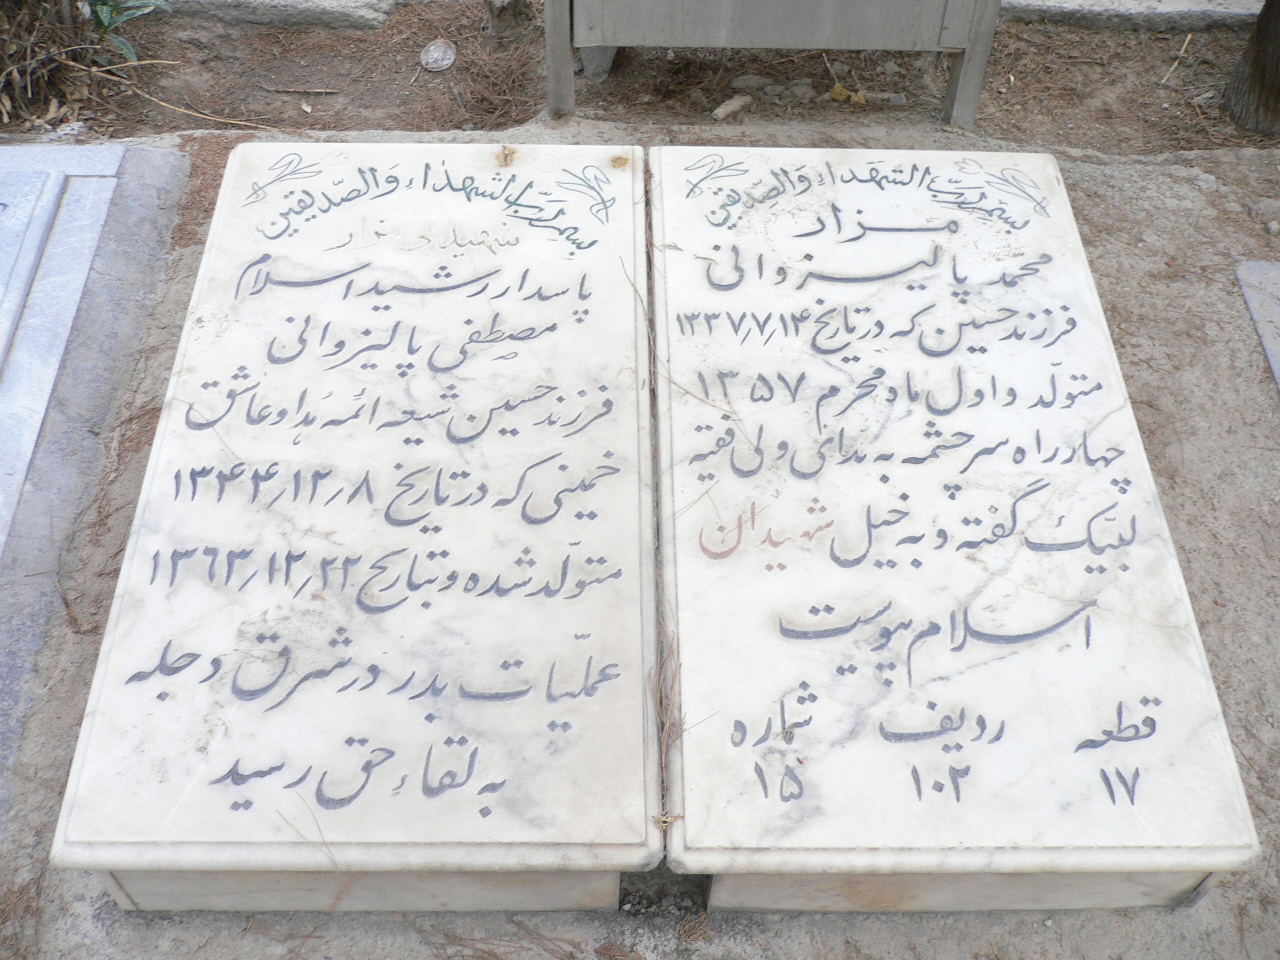 بسم رب الشهداء والصّدیقین
مزار
محمّد پالیزوانی
فرزند حسین که در تاریخ ۱۳۳۷٫۷٫۱۴
متولّد و اول ماه محرم ۱۳۵۷
چهارراه سرچشمه به ندای ولی فقیه
لبّیک گفته و به خیل شهیدان
اسلام پیوست
قطعه ردیف شماره
۱۷ ۱۰۳ ۱۵
بسم رب الشهداء والصّدیقین
مزار شهیدی
پاسدار رشید اسلام
مصطفی پالیزوانی
فرزند حسین شیعه ائمه هدا و عاشق
خمینی که در تاریخ ۱۳۴۴٫۱۲٫۸
متولّد شده و بتاریخ ۱۳۶۳٫۱۲٫۲۲
عملّیات بدر در شرق دجله
به لقاء حق رسید